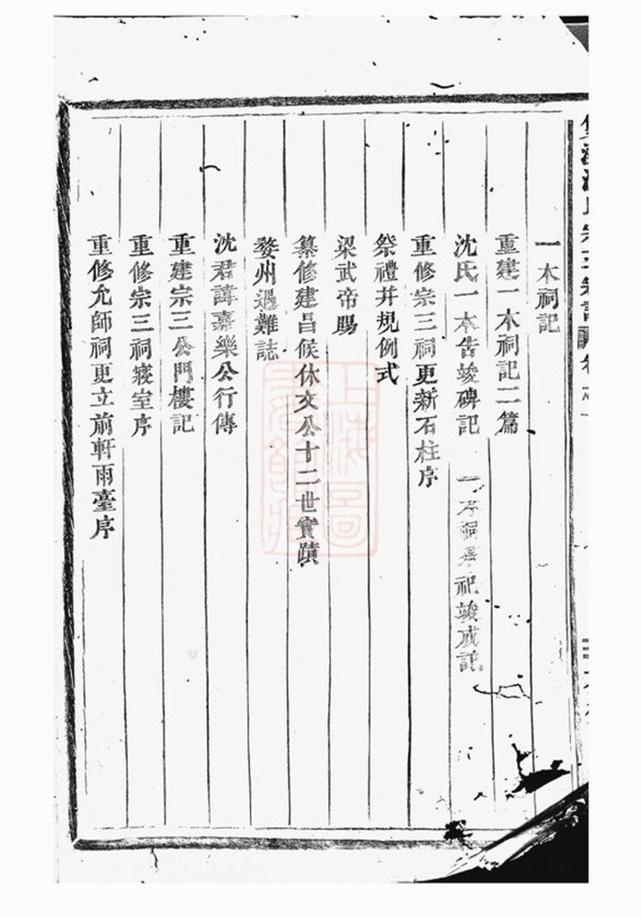 一本祠記
重建一本祠記二篇
沈氏一本告竣碑記 一本祠 祀竣成記
重修宗三祠更新石柱序
祭禮并規例式
梁武帝賜
纂修建昌候休文公十二世實蹟
婺州遇難誌
沈君諱嘉樂公行傳
重建宗三公門樓記
重修宗三祠寢室序
重修允師祠更立前軒雨臺序
上海圖